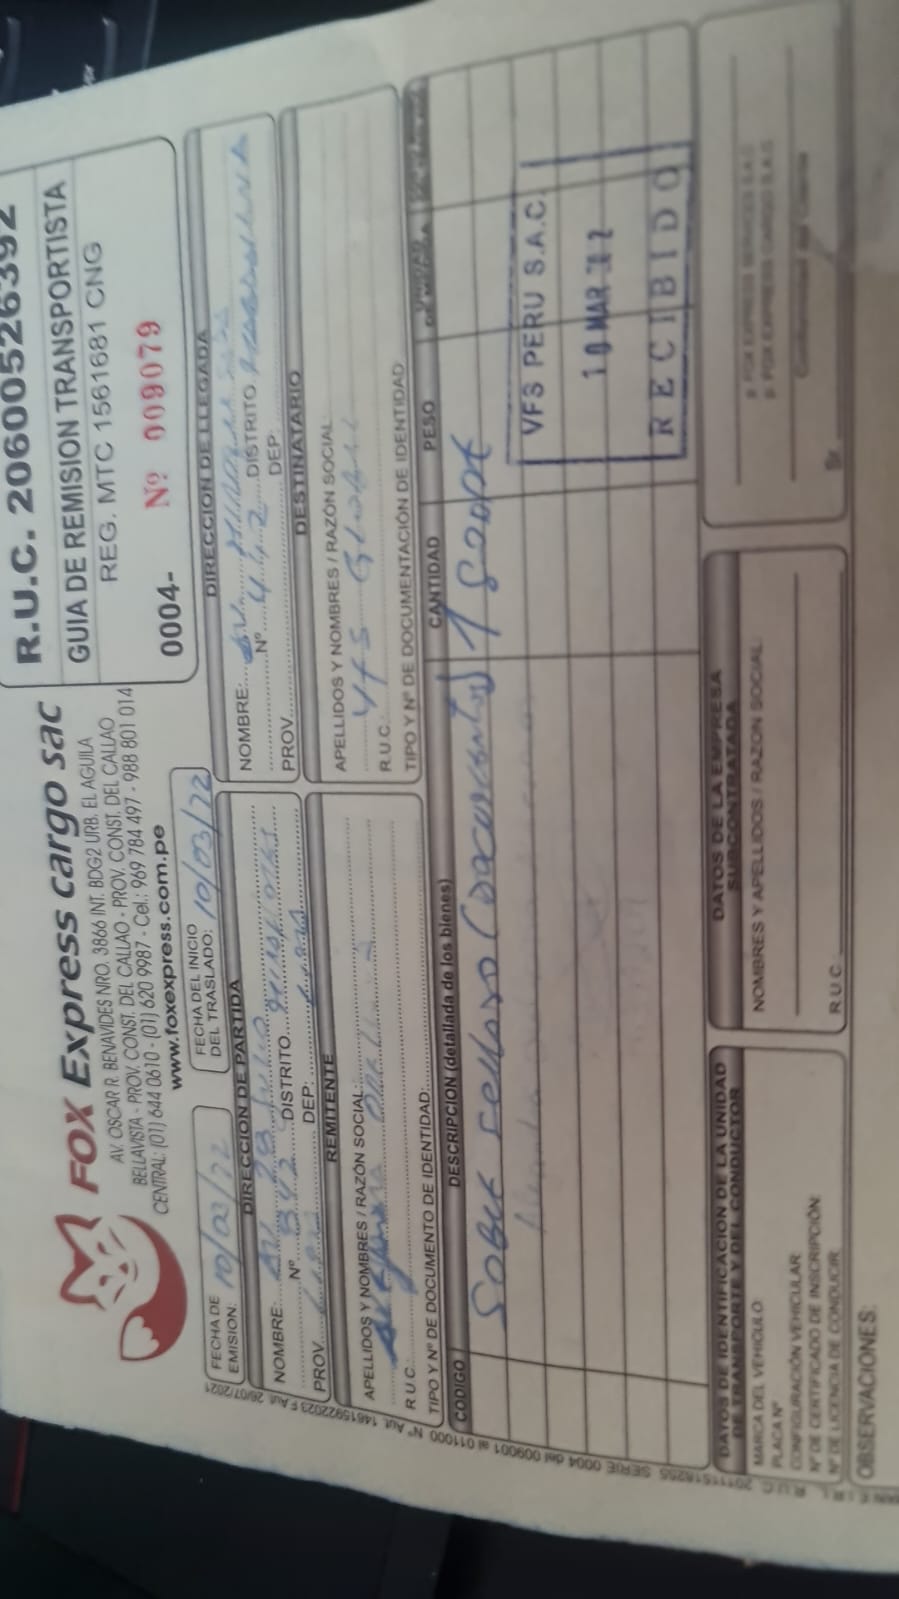 FOX Express cargo sac
AV. OSCAR R. BENAVIDES NRO. 3866 INT. BDG2 URB. EL AGUILA
BELLAVISTA - PROV. CONST. DEL CALLAO - PROV. CONST. DEL CALLAO
CENTRAL: (01) 644 0610 - (01) 620 9987 - Cel.: 969 784 497 - 988 801 014
www.foxexpress.com.pe
R.U.C. 20600526392
GUIA DE REMISION TRANSPORTISTA
REG. MTC 1561681 CNG
0004- Nº 009079
FECHA DE EMISION: 10/03/22
FECHA DEL INICIO DEL TRASLADO: 10/03/22
DIRECCION DE PARTIDA
NOMBRE: Av 28 Julio
Nº 842 DISTRITO
PROV. Lima DEP: Lima
DIRECCION DE LLEGADA
NOMBRE: Av.
Nº 442 DISTRITO
PROV. DEP:
REMITENTE
APELLIDOS Y NOMBRES / RAZÓN SOCIAL:
R.U.C.:
TIPO Y Nº DE DOCUMENTO DE IDENTIDAD:
DESTINATARIO
APELLIDOS Y NOMBRES / RAZÓN SOCIAL:
VFS Global
R.U.C.:
TIPO Y Nº DE DOCUMENTACIÓN DE IDENTIDAD
CODIGO DESCRIPCION (detallada de los bienes) CANTIDAD PESO
Sobre sellado (Documentos) 1 Sobre
VFS PERU S.A.C.
10 MAR
RECIBIDO
DATOS DE IDENTIFICACION DE LA UNIDAD
DE TRANSPORTE Y DEL CONDUCTOR
MARCA DEL VEHICULO:
PLACA Nº
CONFIGURACIÓN VEHICULAR
Nº DE CERTIFICADO DE INSCRIPCIÓN:
Nº DE LICENCIA DE CONDUCIR
DATOS DE LA EMPRESA
SUBCONTRATADA
NOMBRES Y APELLIDOS / RAZON SOCIAL:
R.U.C.:
P. FOX EXPRESS SERVICES S.A.C
P. FOX EXPRESS CARGO S.A.C
Sr.
OBSERVACIONES:
SERIE 0004 del 009001 al 011000 Nº Aut. 14615922023 F Aut. 26/07/2021